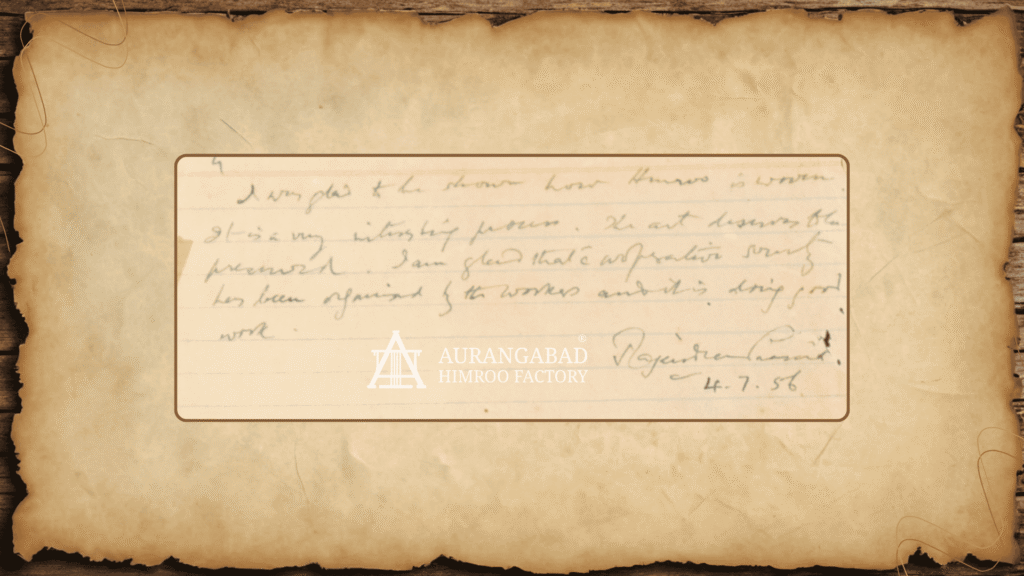 I was glad to be shown how Himroo is woven.
It is a very interesting process. The art deserves to be
preserved. I am glad that a cooperative society
has been organised by the workers and it is doing good
work.
Rajendra Prasad.
4.7.56
AURANGABAD®
HIMROO FACTORY